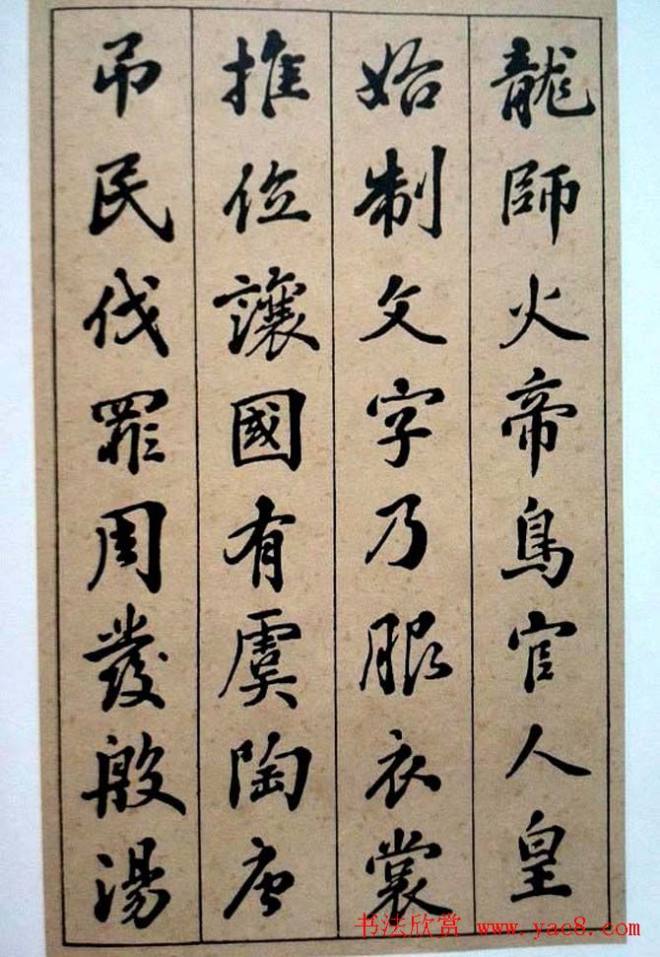 龍師火帝鳥官人皇
始制文字乃服衣裳
推位讓國有虞陶唐
吊民伐罪周發殷湯
书法欣赏 www.yac8.com